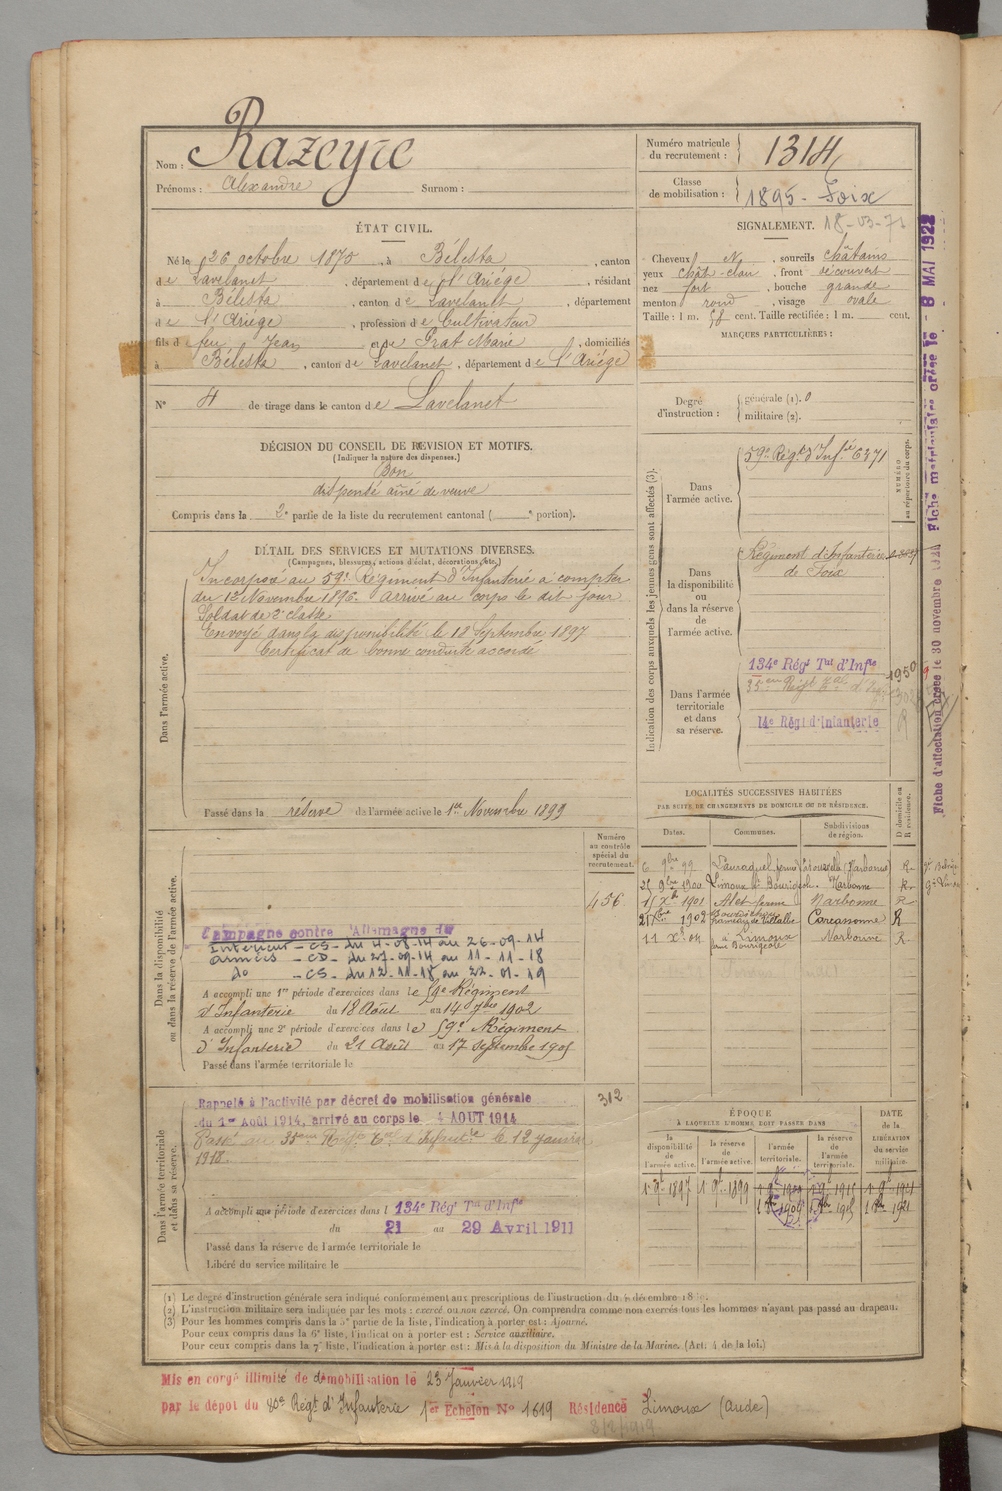 Nom : Razeyre
Prénoms : Alexandre Surnom :
Numéro matricule du recrutement : 1314
Classe de mobilisation : 1895 - Foix
ÉTAT CIVIL.
Né le 26 octobre 1875, à Bélesta, canton
de Lavelanet, département de l'Ariége, résidant
à Bélesta, canton de Lavelanet, département
de l'Ariége, profession de Cultivateur
fils de feu Jean et de Grat Marie, domiciliés
à Bélesta, canton de Lavelanet, département de l'Ariége
N° 4 de tirage dans le canton de Lavelanet
SIGNALEMENT.
Cheveux N, sourcils châtains
yeux chât-clair, front découvert
nez fort, bouche grande
menton rond, visage ovale
Taille : 1 m. 58 cent. Taille rectifiée : 1 m. cent.
MARQUES PARTICULIÈRES :
Degré d'instruction : générale (1). 0
militaire (2).
DÉCISION DU CONSEIL DE REVISION ET MOTIFS.
(Indiquer la nature des dispenses.)
Bon
dispensé aîné de veuve
Compris dans la 2e partie de la liste du recrutement cantonal ( e portion).
DÉTAIL DES SERVICES ET MUTATIONS DIVERSES.
(Campagnes, blessures, actions d'éclat, décorations, etc.)
Dans l'armée active.
Incorporé au 59e Régiment d'Infanterie à compter
du 12 Novembre 1896. Arrivé au corps le dit jour
Soldat de 2e classe
Envoyé dans la disponibilité le 18 Septembre 1897
Certificat de bonne conduite accordé
Passé dans la réserve de l'armée active le 1er Novembre 1899
Indication des corps auxquels les jeunes gens sont affectés (3).
NUMÉRO au répertoire du corps.
Dans l'armée active.
59e Régt d'Inf.ie 6371
Dans la disponibilité ou dans la réserve de l'armée active.
Régiment d'Infanterie
de Foix
Dans l'armée territoriale et dans sa réserve.
134e Régt Tal d'Infie 1950
14e Régt d'Infanterie
Dans la disponibilité ou dans la réserve de l'armée active.
Numéro au contrôle spécial du recrutement.
456
Campagne contre l'Allemagne du
Intérieur - CS - du 4-08-14 au 26-09-14
Armées - CD - du 27-09-14 au 11-11-18
do - CS - du 12-11-18 au 22-01-19
A accompli une 1re période d'exercices dans le 59e Régiment
d'Infanterie du 18 Août au 14 7bre 1902
A accompli une 2e période d'exercices dans le 59e Régiment
d'Infanterie du 21 Août au 17 Septembre 1905
Passé dans l'armée territoriale le
LOCALITÉS SUCCESSIVES HABITÉES
PAR SUITE DE CHANGEMENTS DE DOMICILE OU DE RÉSIDENCE.
Dates. Communes. Subdivisions de région. D domicile ou R résidence.
6 9bre 99 Narbonne R
25 9bre 1900 Narbonne R
1901 Alet Narbonne R
1902 Carcassonne R
11 Limoux Narbonne R
Dans l'armée territoriale et dans sa réserve.
312
Rappelé à l'activité par décret de mobilisation générale
du 1er Août 1914, arrivé au corps le 4 AOUT 1914
Passé au 35eme Régt Tal d'Infanterie le 12 janvier
1918.
A accompli une période d'exercices dans l 134e Régt Tal d'Infie
du 21 au 29 Avril 1911
Passé dans la réserve de l'armée territoriale le
Libéré du service militaire le
ÉPOQUE
À LAQUELLE L'HOMME DOIT PASSER DANS
DATE de la LIBÉRATION du service militaire.
la disponibilité de l'armée active. la réserve de l'armée active. l'armée territoriale. la réserve de l'armée territoriale.
1897 1899 1909 1915 1921
1909 1915 1921
(1) Le degré d'instruction générale sera indiqué conformément aux prescriptions de l'instruction du 4 décembre
(2) L'instruction militaire sera indiquée par les mots : exercé ou non exercé. On comprendra comme non exercés tous les hommes n'ayant pas passé au drapeau.
(3) Pour les hommes compris dans la 5e partie de la liste, l'indication à porter est : Ajourné.
Pour ceux compris dans la 6e liste, l'indication à porter est : Service auxiliaire.
Pour ceux compris dans la 7e liste, l'indication à porter est : Mis à la disposition du Ministre de la Marine. (Art. 4 de la loi.)
Mis en congé illimité de démobilisation le 23 Janvier 1919
par le dépôt du 80e Régt d'Infanterie 1er Echelon N° 1619 Résidence Limoux (Aude)
3/2/1919
Fiche d'affectation créée le 30 novembre Fiche matriculaire créée le - 8 MAI 1922